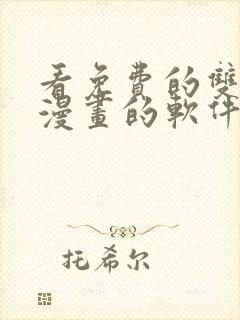 看免費的雙
漫畫的軟件
托希尔